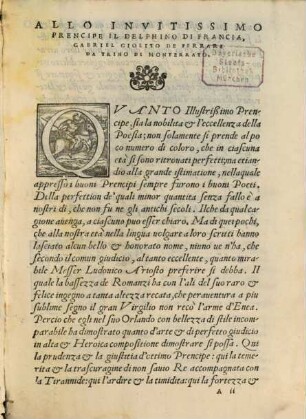 ALLO INVITISSIMO
PRENCIPE IL DELPHINO DI FRANCIA,
GABRIEL GIOLITO DE FERRARI
DA TRINO DI MONFERRATO.
Bayerische
Staats-
Bibliothek
München
QVANTO Illustrißimo Pren-
cipe, sia la nobilità & l'eccellenza della
Poesia; non solamente si prende al po
co numero di coloro, che in ciascuna
età si sono ritrouati perfetti; ma etian
dio alla grande istimatione, nellaquale
appresso i buoni Prencipi sempre furono i buoni Poeti.
Della perfettion de' quali minor quantita senza fallo è a
nostri dì, che non fu ne gli antichi secoli. Ilche da qualca-
gione auenga, a ciascuno puo esser chiaro. Ma di quei pochi,
che alla nostra età nella lingua volgare a loro scritti hanno
lasciato alcun bello & honorato nome, niuno ue n'ha, che
secondo il comun giudicio, al tanto eccellente, quanto mira-
bile Messer Lodouico Ariosto preferire si debba. Il
quale la bassezza de Romanzi ha con l'ali del suo raro &
felice ingegno a tanta altezza recata, che perauentura a piu
sublime segno il gran Virgilio non recò l'arme d'Enea.
Percio che egli nel suo Orlando con bellezza di stile incom-
parabile ha dimostrato quanto d'arte & di perfetto giudicio
in alta & Heroica compositione dimostrare si possa. Qui
la prudenza & la giustitia d'ottimo Prencipe: qui la teme-
rità & la trascuragine di non sauio Re accompagnata con
la Tirannide: qui l'ardire & la timidità: qui la fortezza &
A ii